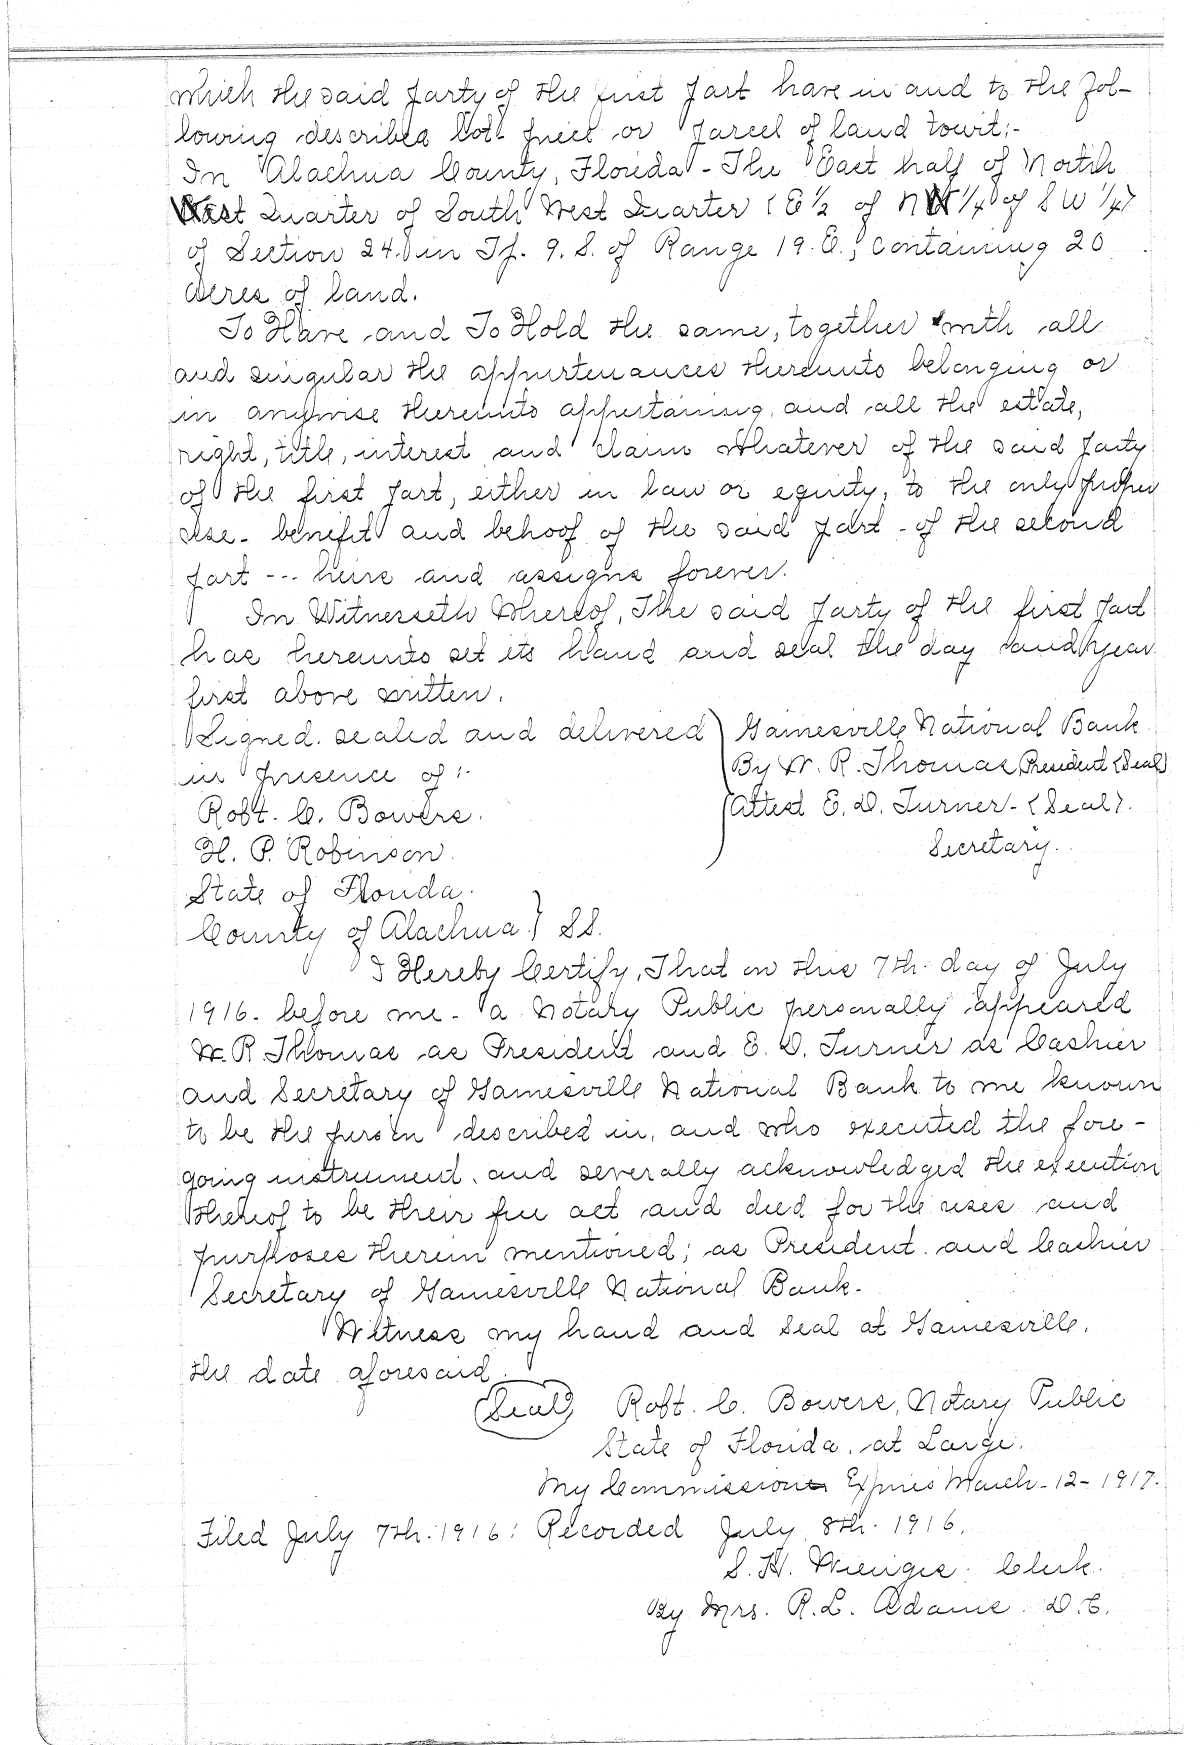 which the said party of the first part have in and to the fol-
lowing described lot piece or parcel of land towit:-
In Alachua County, Florida - The East half of North
West Quarter of South West Quarter (E 1/2 of NW 1/4 of S W 1/4)
of Section 24. in Tp. 9. S. of Range 19. E., containing 20
acres of land.
To Have and To Hold the same, together with all
and singular the appurtenances thereunto belonging or
in anywise thereunto appertaining, and all the estate,
right, title, interest and claim whatever of the said party
of the first part, either in law or equity, to the only proper
use- benefit and behoof of the said part - of the second
part --- heirs and assigns forever.
In Witnesseth Whereof, The said party of the first part
has hereunto set its hand and seal the day and year
first above written.
Signed. sealed and delivered } Gainesville National Bank
in presence of:- By W. R. Thomas, President (Seal)
Robt. C. Bowers. Attest E. D. Turner- (Seal).
H. P. Robinson. Secretary.
State of Florida.
County of Alachua } SS.
I Hereby Certify, That on this 7th. day of July
1916. before me - a Notary Public personally appeared
W. R. Thomas as President and E. D. Turner as Cashier
and Secretary of Gainesville National Bank to me known
to be the person described in, and who executed the fore-
going instrument, and severally acknowledged the execution
thereof to be their free act and deed for the uses and
purposes therein mentioned; as President and Cashier
Secretary of Gainesville National Bank.
Witness my hand and seal at Gainesville,
the date aforesaid.
(Seal) Robt. C. Bowers, Notary Public
State of Florida, at Large.
My Commission Expires March-12-1917.
Filed July 7th. 1916: Recorded July 8th. 1916.
S. H. Wienges. Clerk.
By Mrs. R. L. Adams. D. C.